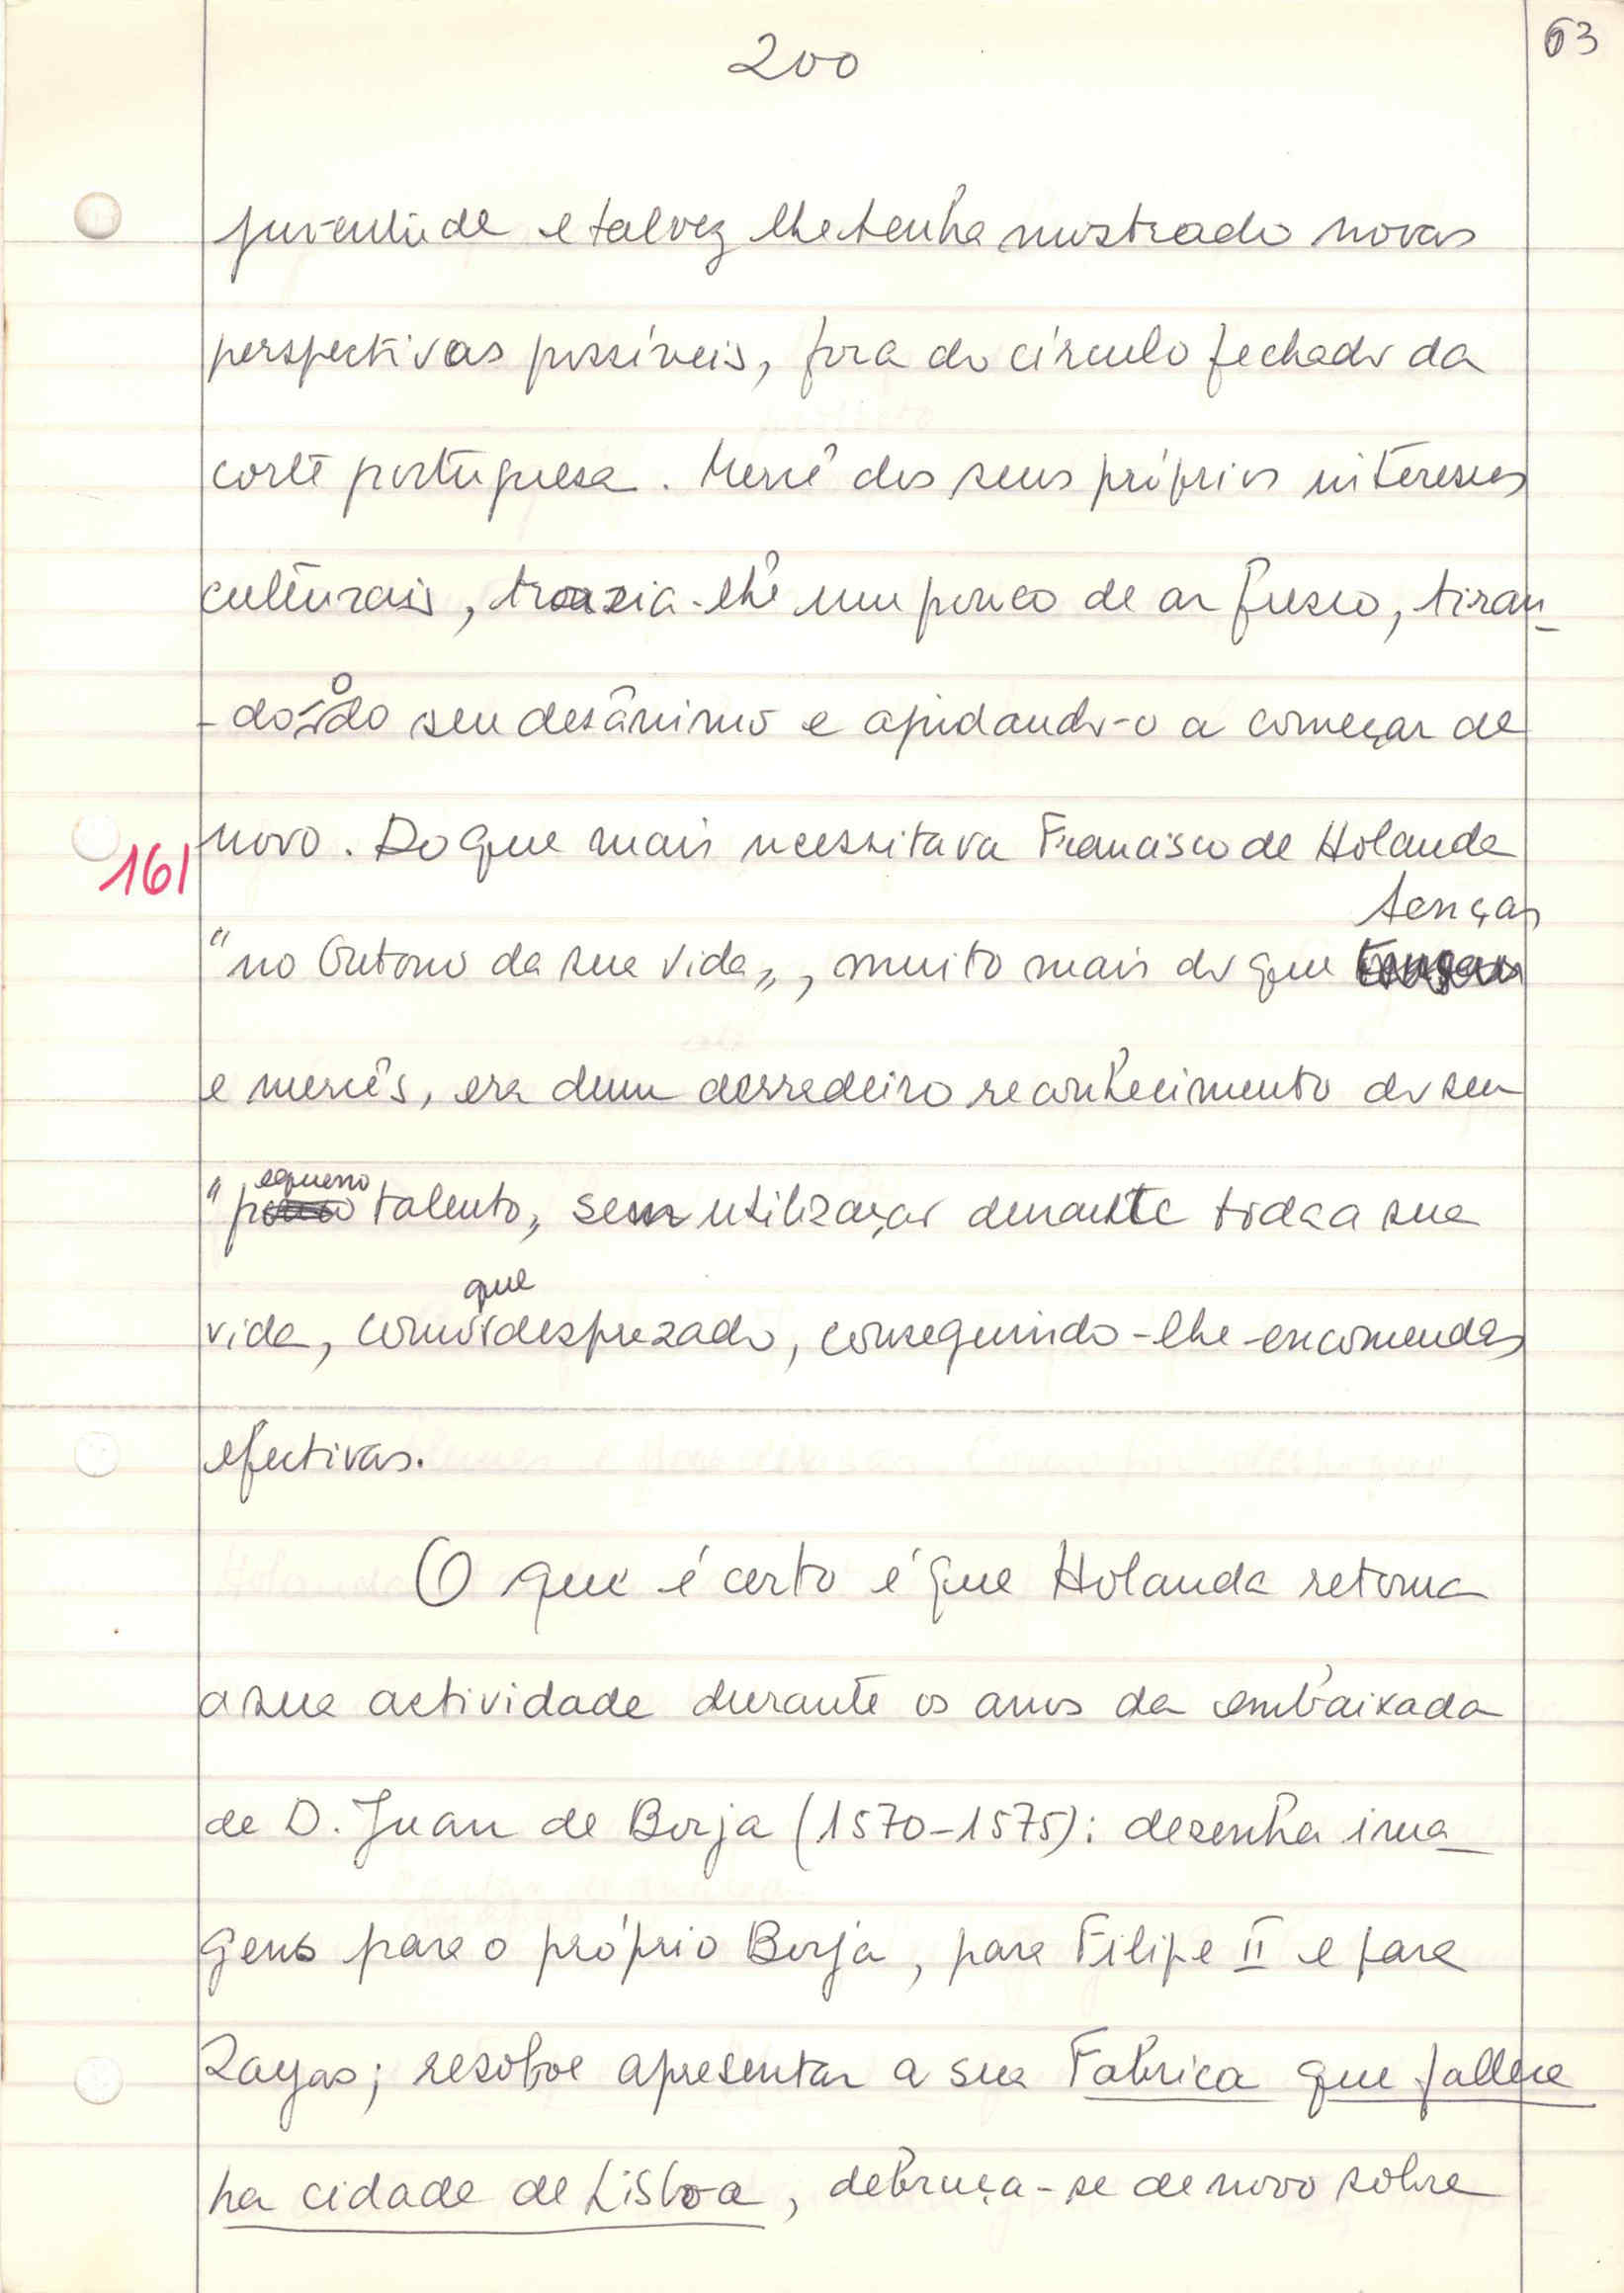 200
63
juventude e talvez lhe tenha mostrado novas
perspectivas possíveis, fora do círculo fechado da
corte portuguesa. Mercê dos seus próprios interesses
culturais, trazia-lhe um pouco de ar fresco, tiran-
-do-o do seu desânimo e ajudando-o a começar de
161
novo. Do que mais necessitava Francisco de Holanda
tenças
"no Outono da sua vida", muito mais do que
e mercês, era dum derradeiro reconhecimento do seu
"pequeno talento", sem utilização durante toda a sua
vida, como que desprezado, conseguindo-lhe encomendas
efectivas.
O que é certo é que Holanda retoma
a sua actividade durante os anos da embaixada
de D. Juan de Borja (1570-1575): desenha ima-
gens para o próprio Borja, para Filipe II e para
Zayas; resolve apresentar a sua Fabrica que fallece
ha cidade de Lisboa, debruça-se de novo sobre